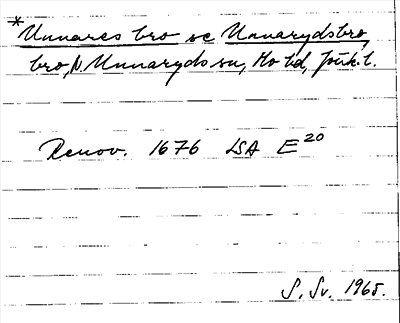 *Unnares bro se Unnarydsbro,
bro, N. Unnaryds sn, Mo hd, Jönk. l.
Renov. 1676 LSA E20
S. Sv. 1965.